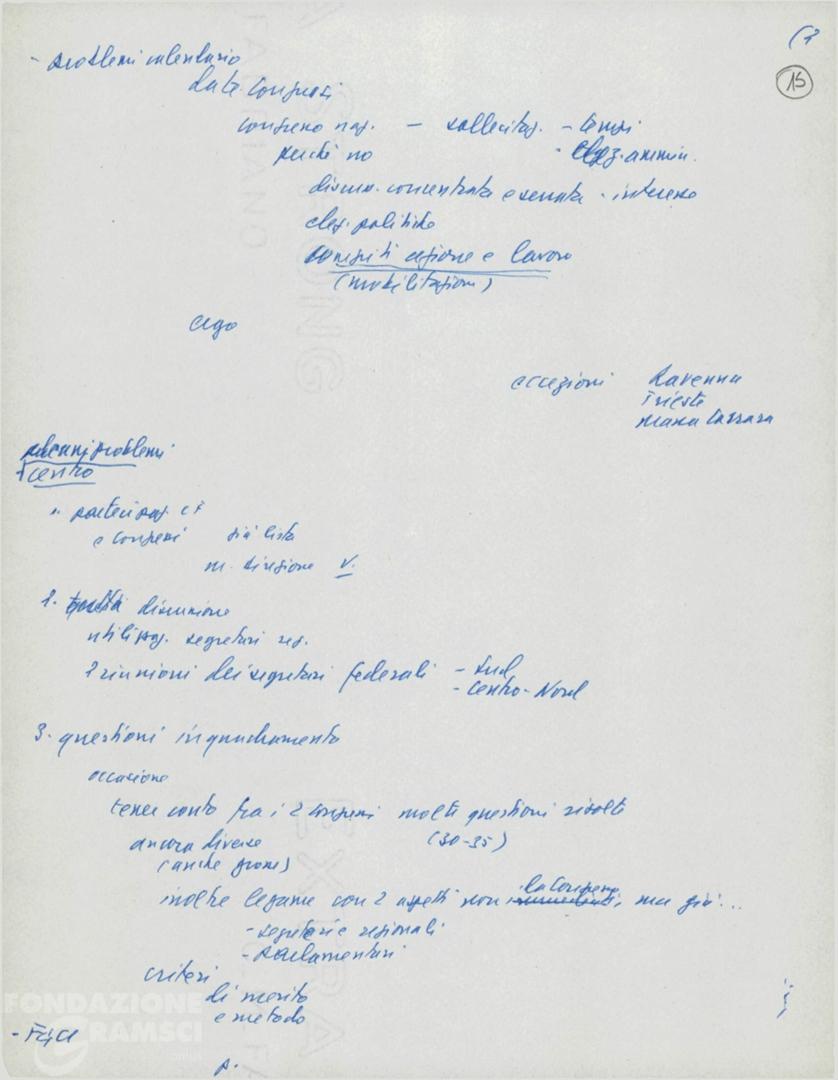 15
- problemi calendario
date congressi
congresso naz. - sollecitaz. - tempi
perché no - elez. ammin.
discuss. concentrata e serrata - interesse
elez. politiche
compiti azione e lavoro
(mobilitazioni)
ago
eccezioni Ravenna
Trieste
Massa Carrara
alcuni problemi
centro
partecipaz. CF
e congressi già lista
m. direzione V.
discussione
utilizzaz. segretari reg.
2 riunioni dei segretari federali - Sud
- Centro-Nord
3. questioni inquadramento
occasione
tener conto fra i 2 congressi molte questioni risolte
ancora diverse (30-35)
(anche grosse)
inoltre legame con 2 aspetti non da congresso, ma già...
- segreterie regionali
- parlamentari
criteri
di merito
e metodo
- FGCI
p.
FONDAZIONE
GRAMSCI